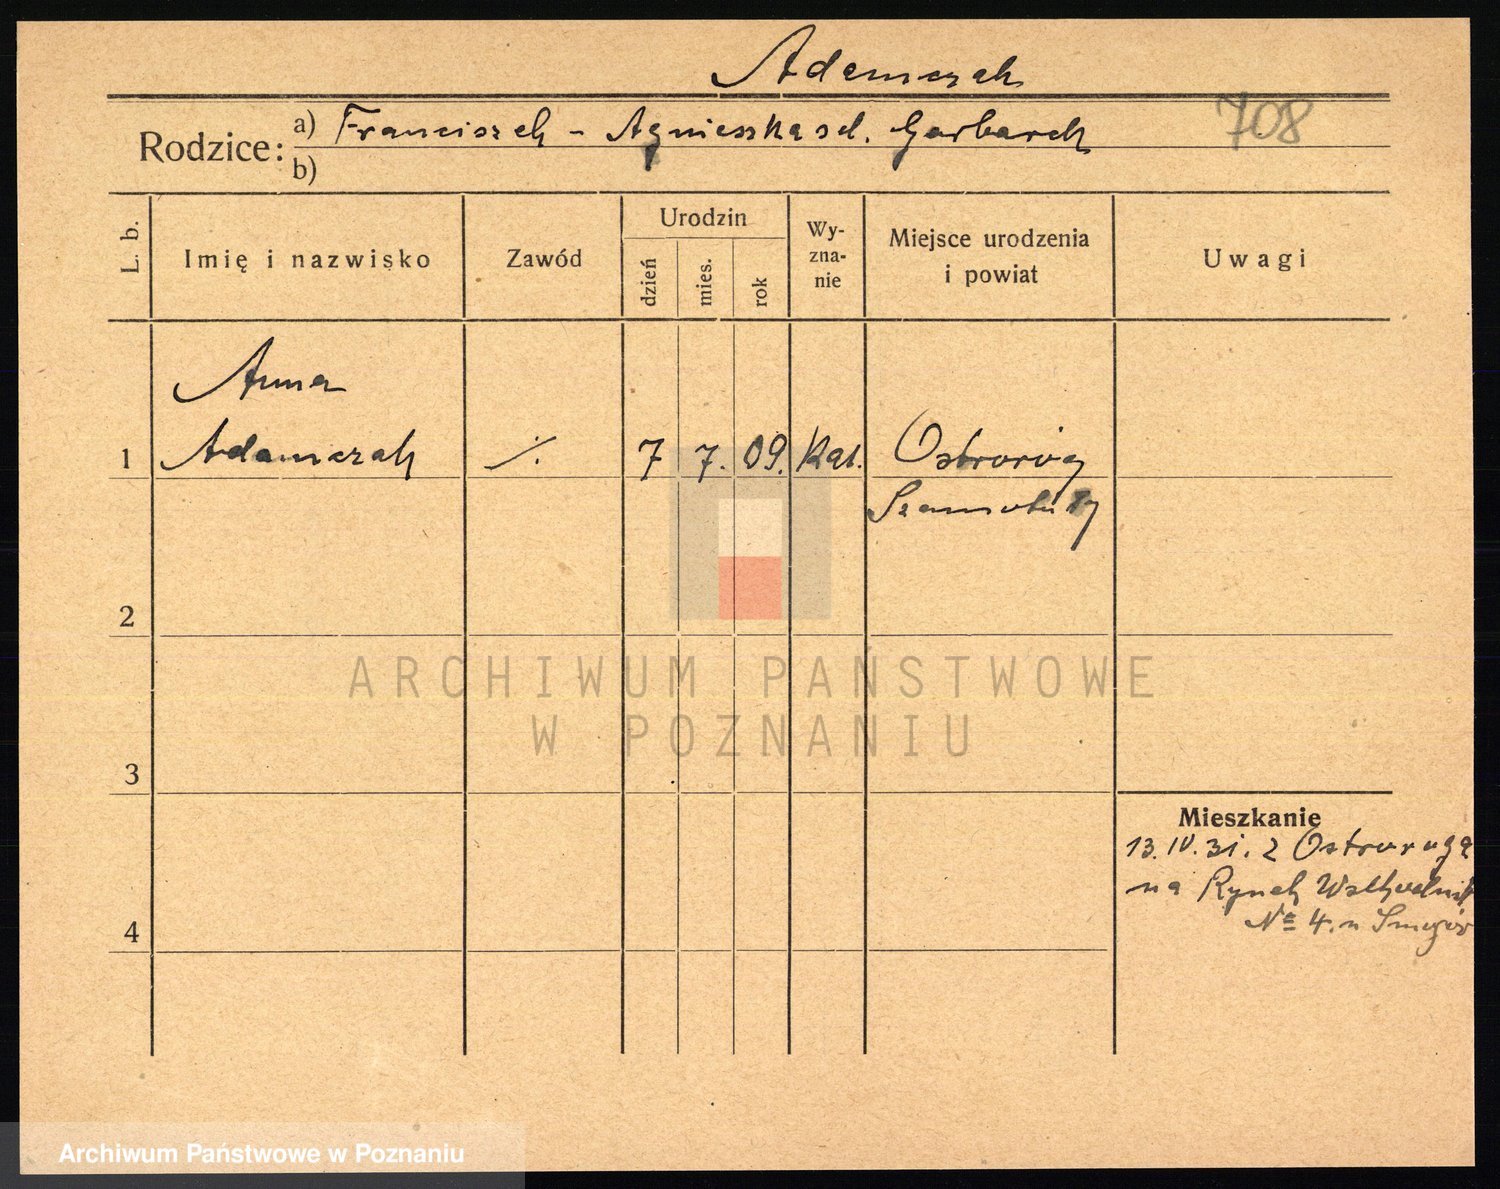 Adamczak
Rodzice: a) Franciszek - Agnieszka sd. Garbarek
708
b)
L. b.
Imię i nazwisko
Zawód
Urodzin
dzień
mies.
rok
Wy-
zna-
nie
Miejsce urodzenia
i powiat
Uwagi
Anna
1 Adamczak ./. 7 7. 09. Kat. Ostroróg
Szamotuły
2
ARCHIWUM PAŃSTWOWE
W POZNANIU
3
Mieszkanie
13.IV.31. z Ostroroga
na Rynek
4
№ 4. u
Archiwum Państwowe w Poznaniu